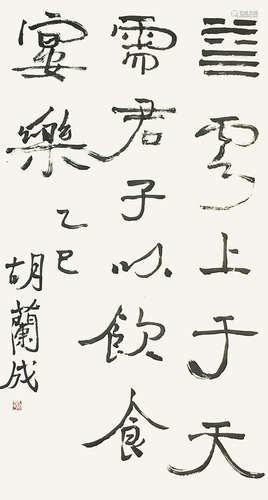 ䷄雲上于天
需君子以飲食
宴樂 乙巳
胡蘭成